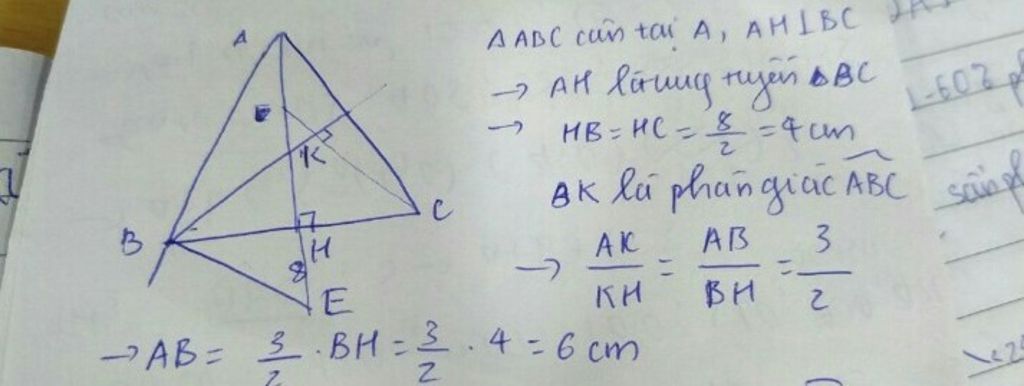 A
ΔABC cân tại A, AH⊥BC
→ AH là trung tuyến ΔBC
→ HB = HC = 8/2 = 4 cm
BK là phân giác ABC
→ AK/KH = AB/BH = 3/2
K
B
H
C
8
E
→ AB = 3/2 . BH = 3/2 . 4 = 6 cm